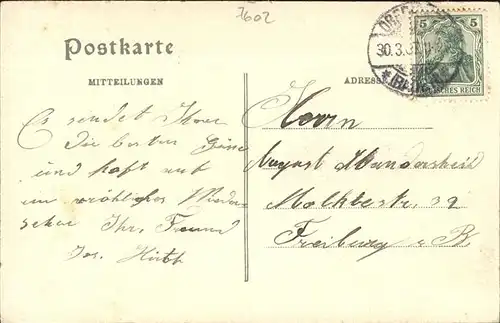 7602
Postkarte
MITTEILUNGEN
ADRESSE
5 5
30.3.
DEUTSCHES REICH
Es sendet Ihnen
Die besten Grüße
und hofft auf
ein fröhliches Wieder-
sehen Ihr Freund
Jos.
Herrn
August
Moltkestr. 39
Freiburg i B